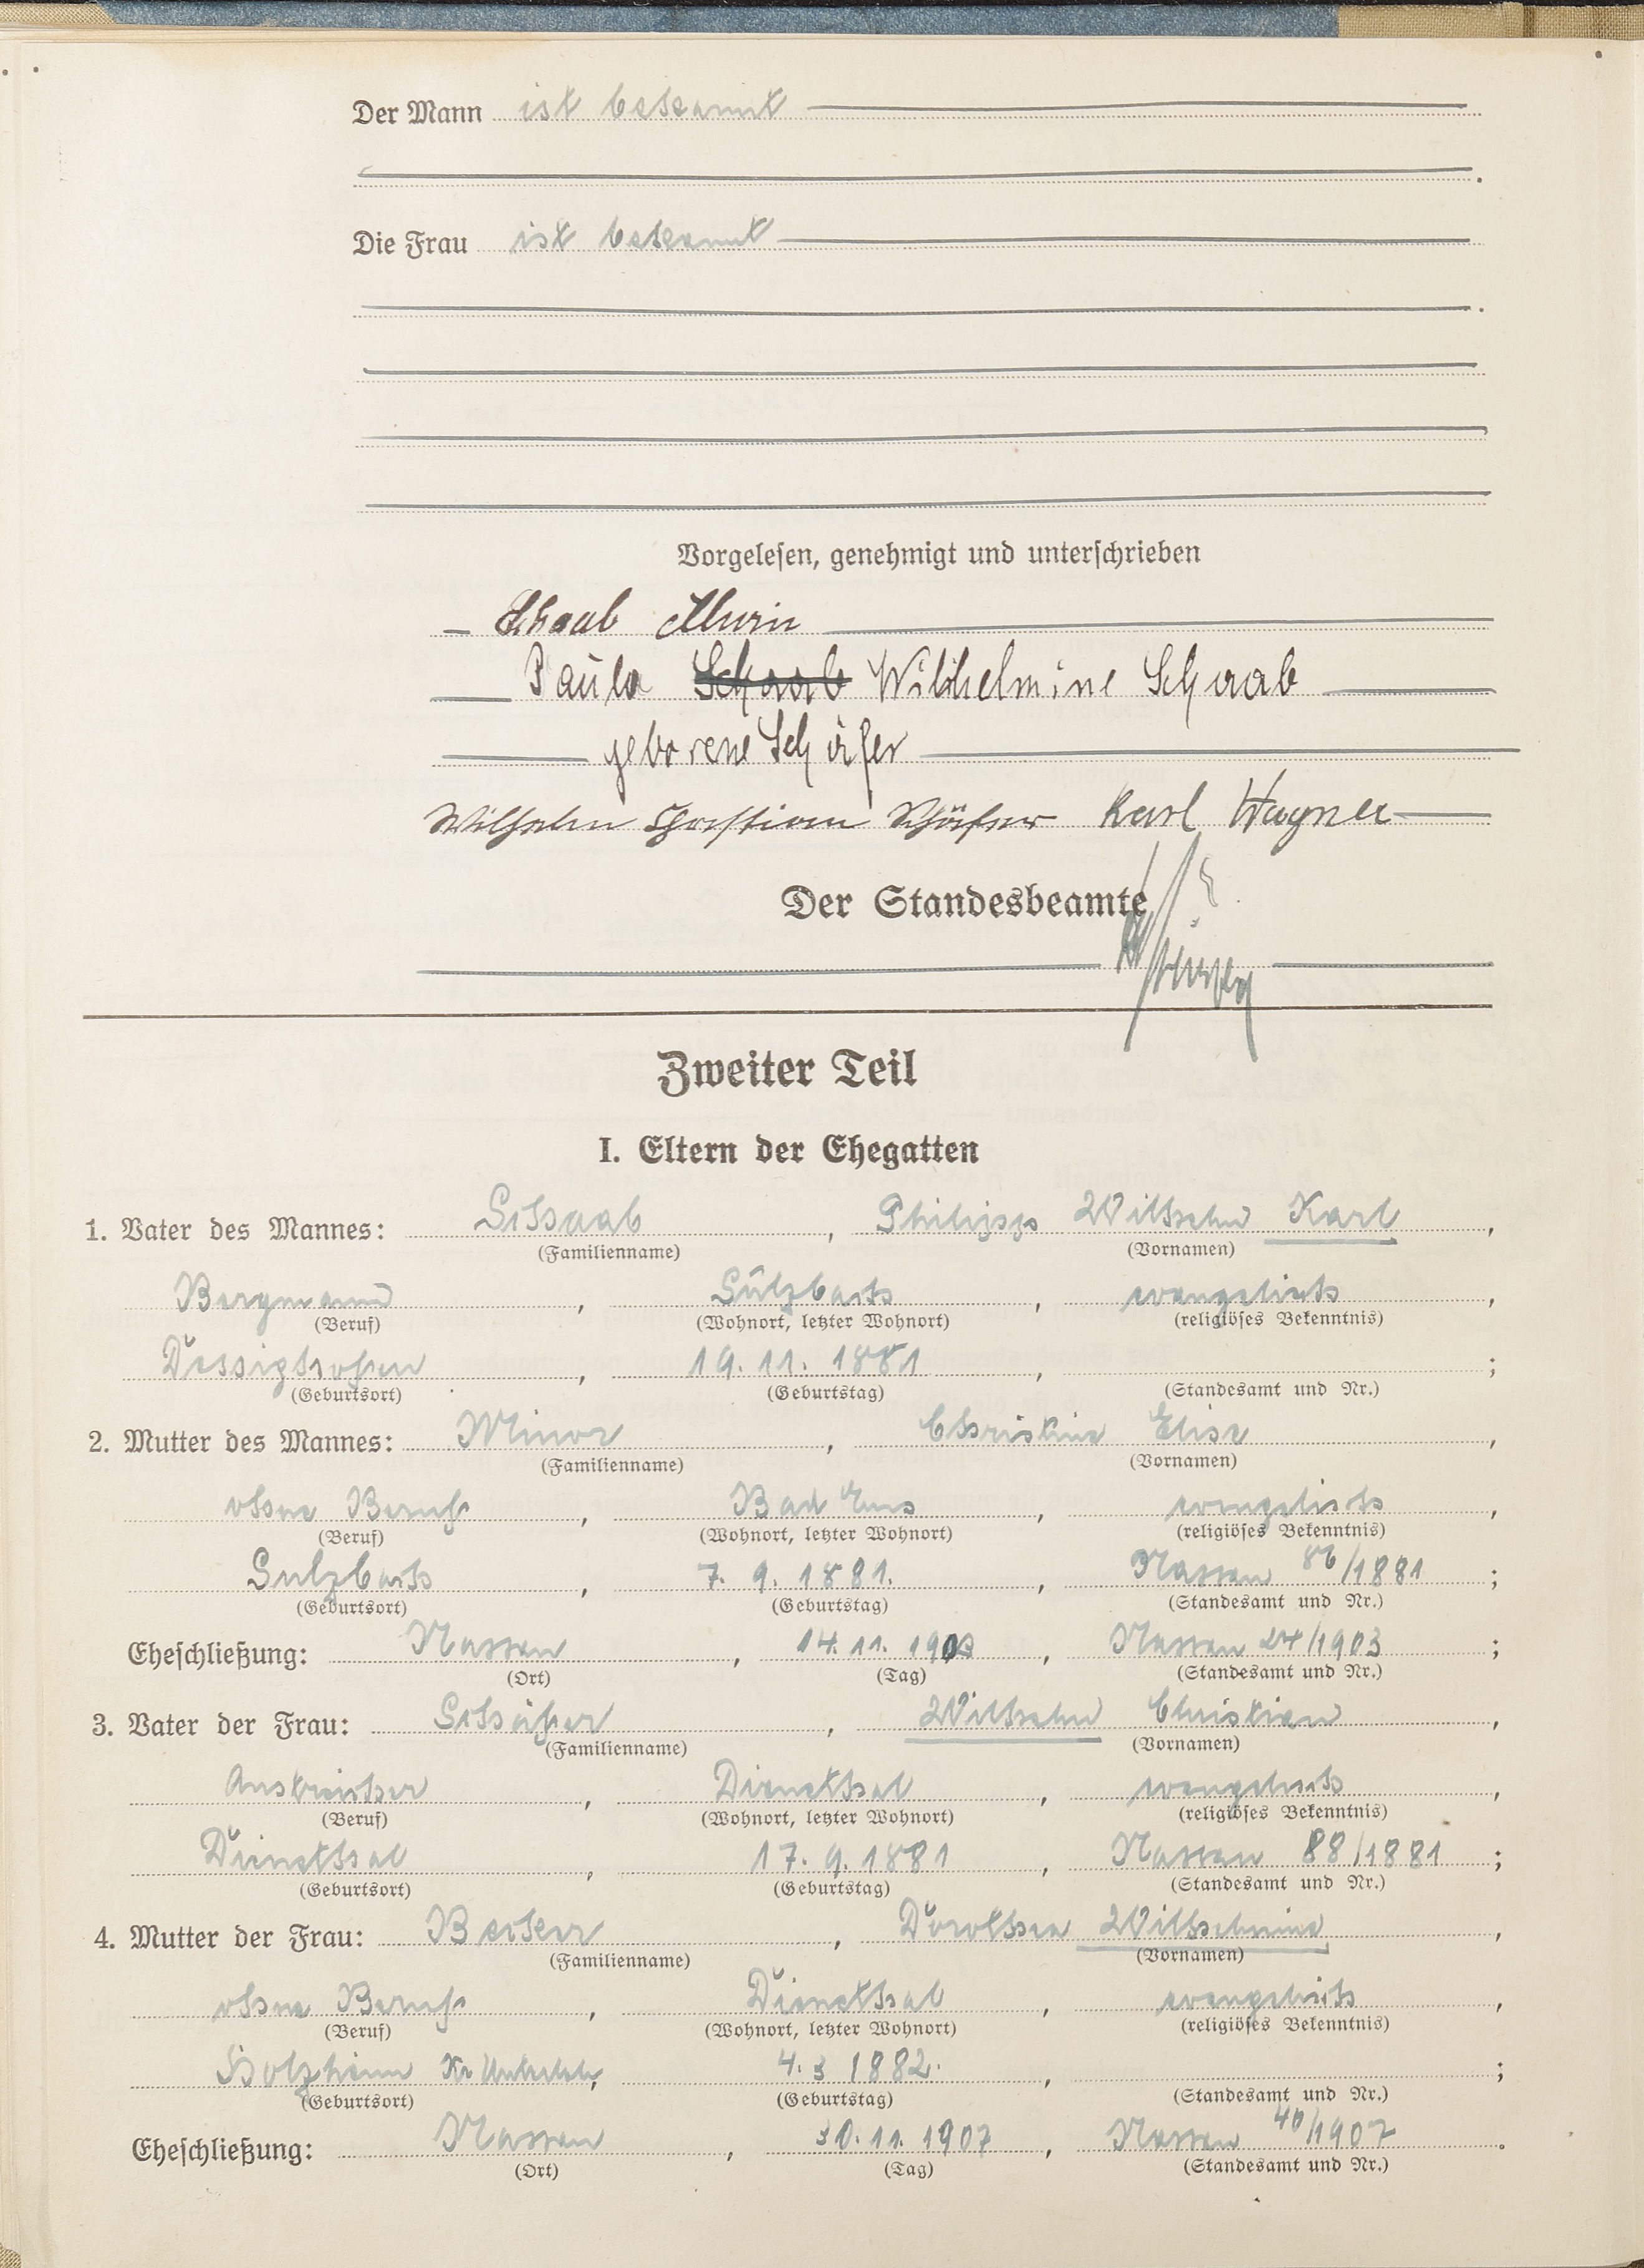 Der Mann ist bekannt
Die Frau ist bekannt
Vorgelesen, genehmigt und unterschrieben
Schaab Alwin
Paula Schaab Wilhelmine Schaab
geborene Schäfer
Wilhelm Christian Schäfer Karl Wagner
Der Standesbeamte
Zweiter Teil
I. Eltern der Ehegatten
1. Vater des Mannes: Schaab, Philipp Wilhelm Karl,
(Familienname) (Vornamen)
Bergmann, Sulzbach, evangelisch,
(Beruf) (Wohnort, letzter Wohnort) (religiöses Bekenntnis)
Dessighofen, 19. 11. 1881, ;
(Geburtsort) (Geburtstag) (Standesamt und Nr.)
2. Mutter des Mannes: Minor, Christine Elise,
(Familienname) (Vornamen)
ohne Beruf, Bad Ems, evangelisch,
(Beruf) (Wohnort, letzter Wohnort) (religiöses Bekenntnis)
Sulzbach, 7. 9. 1881., Nassau 86/1881;
(Geburtsort) (Geburtstag) (Standesamt und Nr.)
Eheschließung: Nassau, 14. 11. 1903, Nassau 24/1903;
(Ort) (Tag) (Standesamt und Nr.)
3. Vater der Frau: Schäfer, Wilhelm Christian,
(Familienname) (Vornamen)
Anstreicher, Dienethal, evangelisch,
(Beruf) (Wohnort, letzter Wohnort) (religiöses Bekenntnis)
Dienethal, 17. 9. 1881, Nassau 88/1881;
(Geburtsort) (Geburtstag) (Standesamt und Nr.)
4. Mutter der Frau: Becker, Dorothea Wilhelmine,
(Familienname) (Vornamen)
ohne Beruf, Dienethal, evangelisch,
(Beruf) (Wohnort, letzter Wohnort) (religiöses Bekenntnis)
Holzheim Kr. Unterlahn, 4. 3 1882., ;
(Geburtsort) (Geburtstag) (Standesamt und Nr.)
Eheschließung: Nassau, 30. 11. 1907, Nassau 40/1907.
(Ort) (Tag) (Standesamt und Nr.)